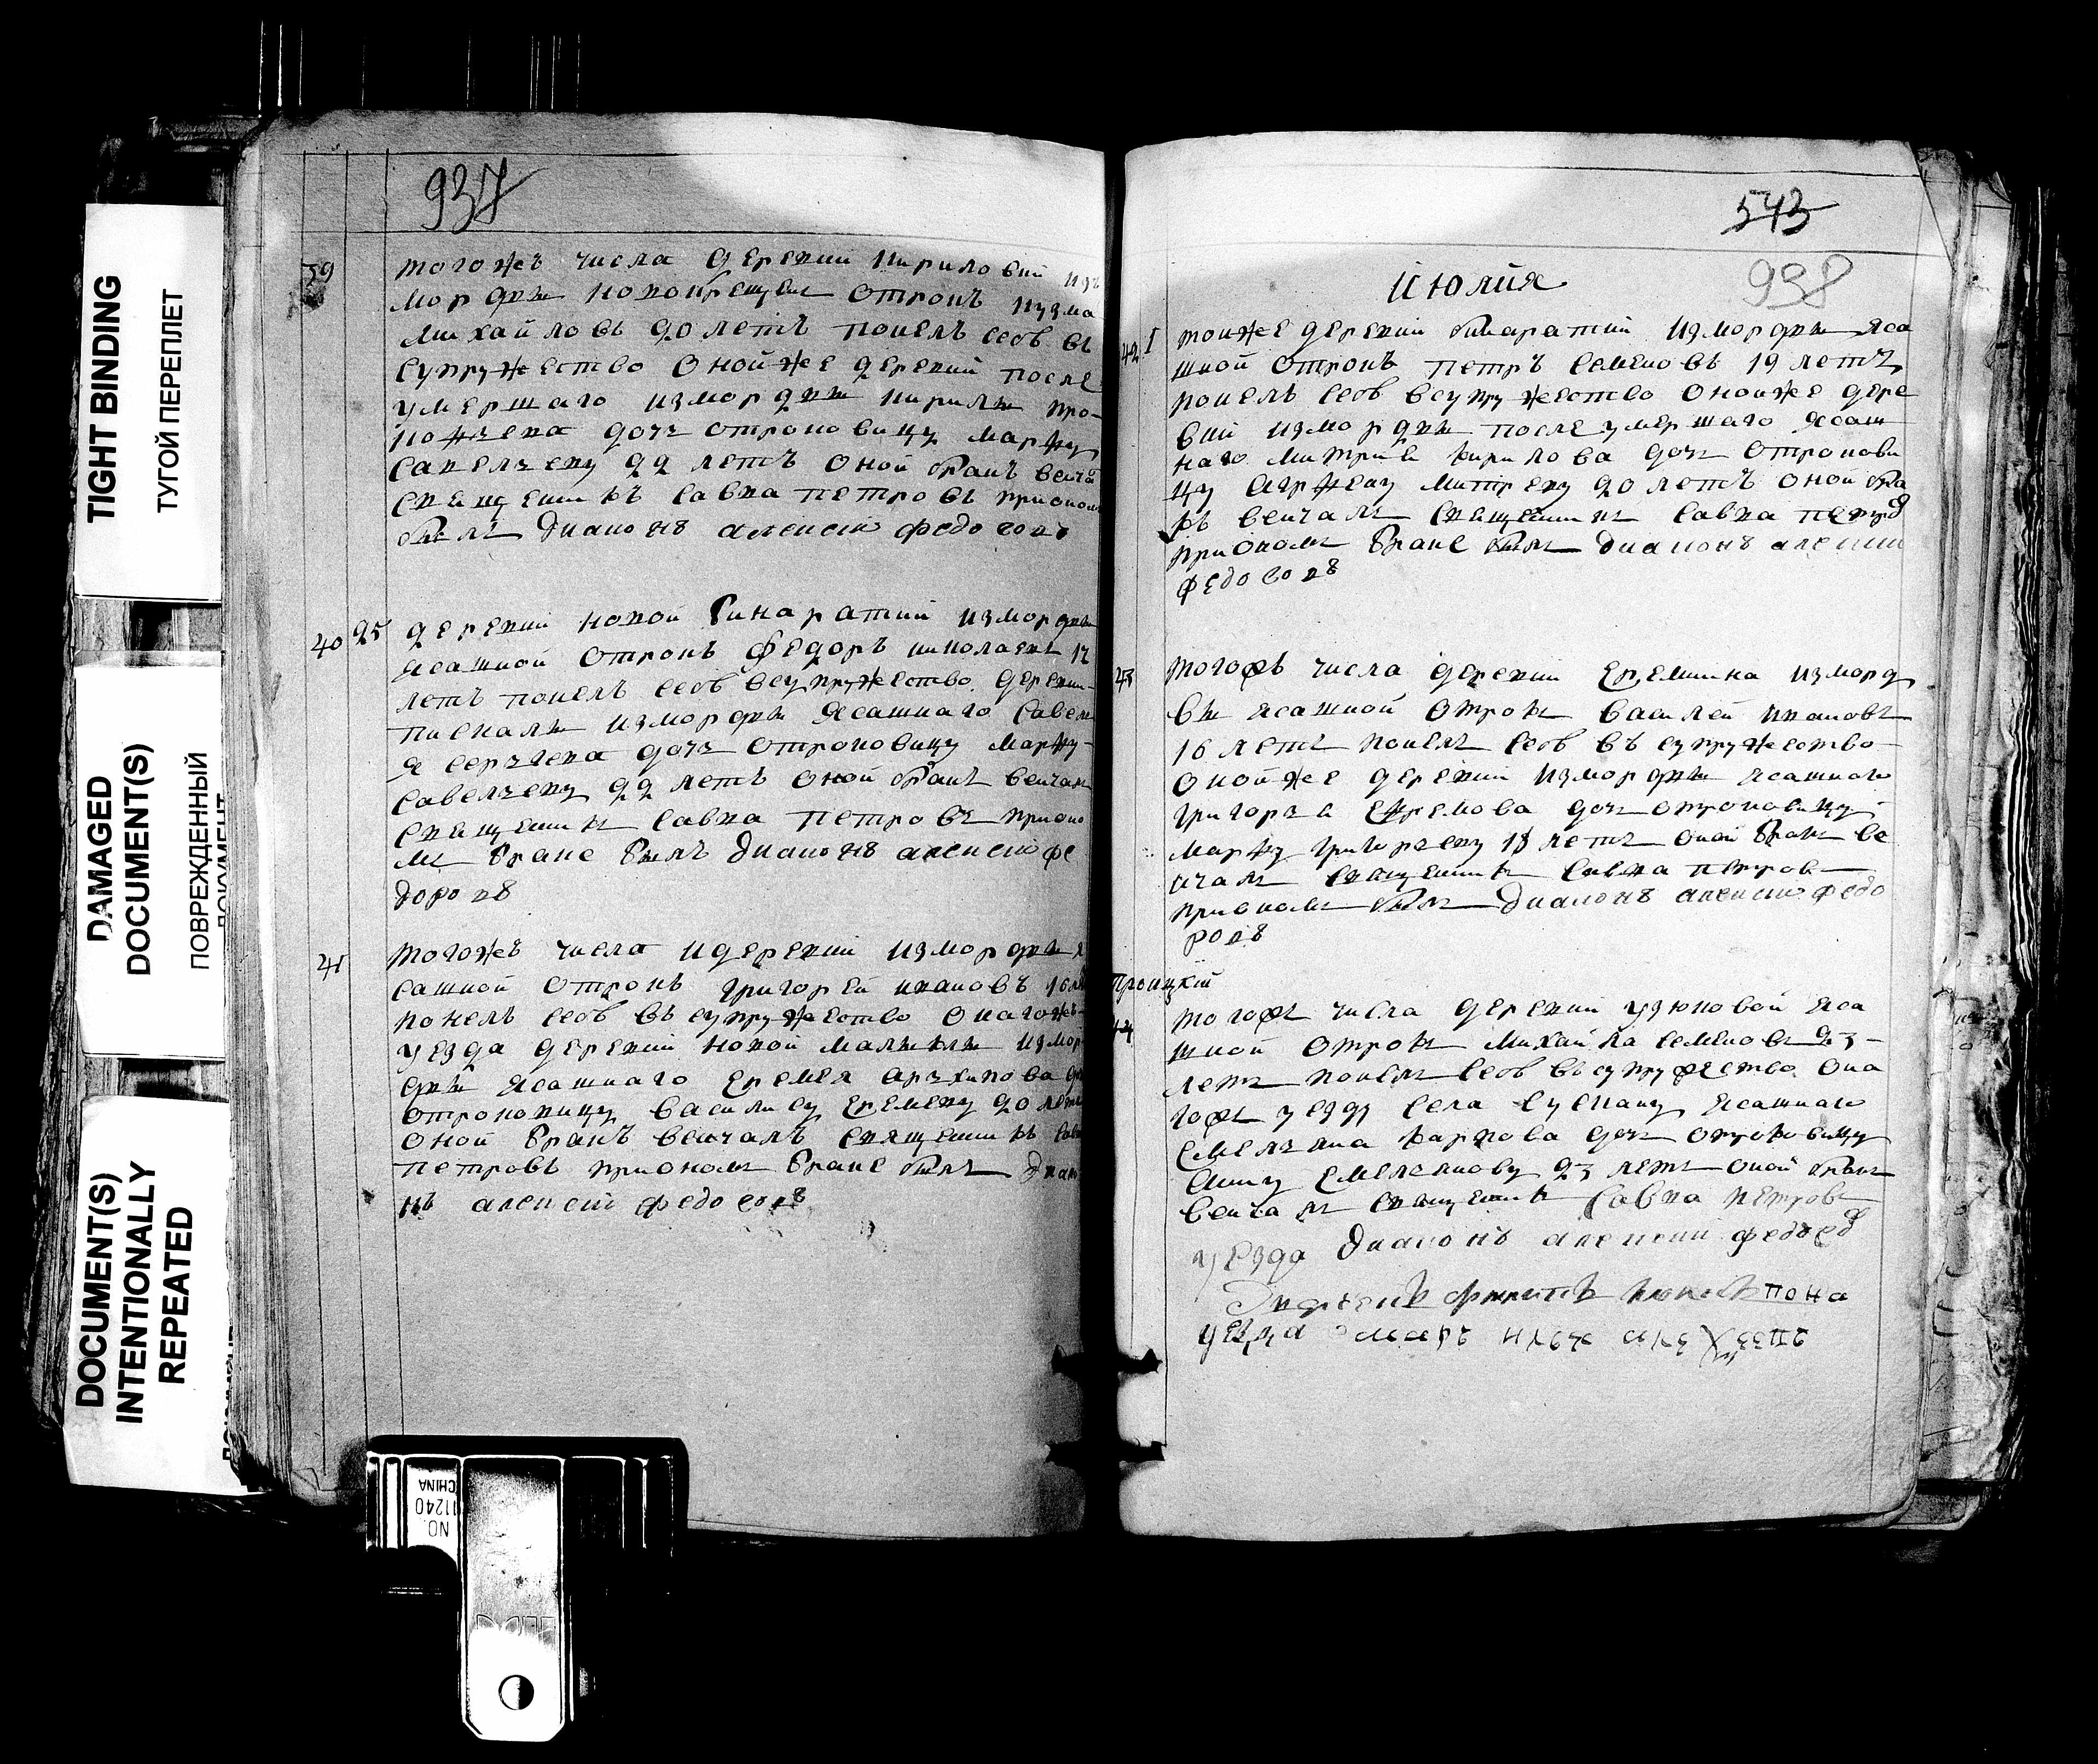 TIGHT BINDING
ТУГОЙ ПЕРЕПЛЕТ
DAMAGED
DOCUMENT(S)
ПОВРЕЖДЕННЫЙ
ДОКУМЕНТ
DOCUMENT(S)
INTENTIONALLY
REPEATED
937
39
тогожъ числа деревни кириловки изъ
мордвы новокрещенъ отрокъ кузма
михайловъ 20 летъ понелъ себѣ въ
супружество оной же деревни после
умершаго измордвы кирилы про-
кофьева дочь отроковицу марфу
савельеву 22 летъ оной бракъ венча
священникъ савва петровъ прионом
былъ диаконъ алексей федосовъ
40 25 деревни новой бинаратки измордвы
ясашной отрокъ федоръ николаевъ 17
летъ понелъ себѣ всупружество деревни
пискалы измордвы ясашнаго савел
я сергеева дочь отроковицу марфу
савельеву 22 летъ оной бракъ венчал
священникъ савва петровъ прионо
мъ браке былъ диаконъ алексей фе
доровъ
41
тогожъ числа и деревни измордвы я
сашной отрокъ григорей ивановъ 16
понелъ себѣ въ супружество онагожъ
уезда деревни новой малыклы измор
двы ясашнаго еремея архипова
отроковицу василису еремеву 20 лет
оной бракъ венчалъ священникъ савв
петровъ приономъ браке былъ диако
нъ алексей федосовъ
543
938
июлия
42 1 тойже деревни бинаратки измордвы яса
шной отрокъ петръ семеновъ 19 летъ
понелъ себѣ всупружество онойже дере
вни измордвы после умершаго ясаш
наго митрия кирилова дочь отрокови
цу аграфену митреву 20 летъ оной бра
къ венчалъ священникъ савва петров
приономъ браке былъ диаконъ алексии
федосовъ
43
тогожъ числа деревни еремкина изморд
вы ясашной отрокъ василей ивановъ
16 летъ понелъ себѣ въ супружество
онойже деревни измордвы ясашнаго
григорья ефремова дочь отроковицу
марфу григорьеву 18 летъ оной бракъ ве
нчалъ священникъ савва петровъ
приономъ былъ диаконъ алексии федо
ровъ
троицкий
44
тогожъ числа деревни узюковой яса
шной отрокъ михайла семеновъ 23
летъ понелъ себѣ въ супружество она
гожъ уезду села сускану ясашнаго
емельяна карпова дочь отроковицу
анну емельянову 23 летъ оной бракъ
венчалъ священникъ савва петровъ
уезда диаконъ алексии федосов
пона
уезда
NO.
11240
CHINA